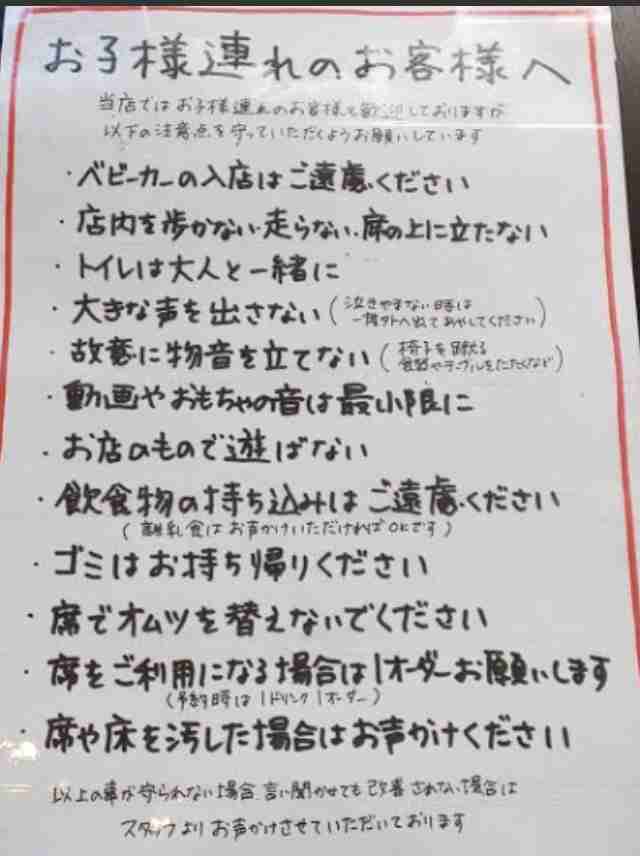 お子様連れのお客様へ
当店ではお子様連れのお客様も歓迎しておりますが
以下の注意点を守っていただくようお願いしています
・ベビーカーの入店はご遠慮ください
・店内を歩かない・走らない・席の上に立たない
・トイレは大人と一緒に
・大きな声を出さない(泣きやまない時は
一度外へ出てあやしてください)
・故意に物音を立てない(椅子を蹴る
食器やテーブルをたたくなど)
・動画やおもちゃの音は最小限に
・お店のもので遊ばない
・飲食物の持ち込みはご遠慮ください
(離乳食はお声かけいただければOKです)
・ゴミはお持ち帰りください
・席でオムツを替えないでください
・席をご利用になる場合は1オーダーお願いします
(予約時は1ドリンク1オーダー)
・席や床を汚した場合はお声がけください
以上の事が守られない場合、言い聞かせても改善されない場合は
スタッフよりお声がけさせていただいております